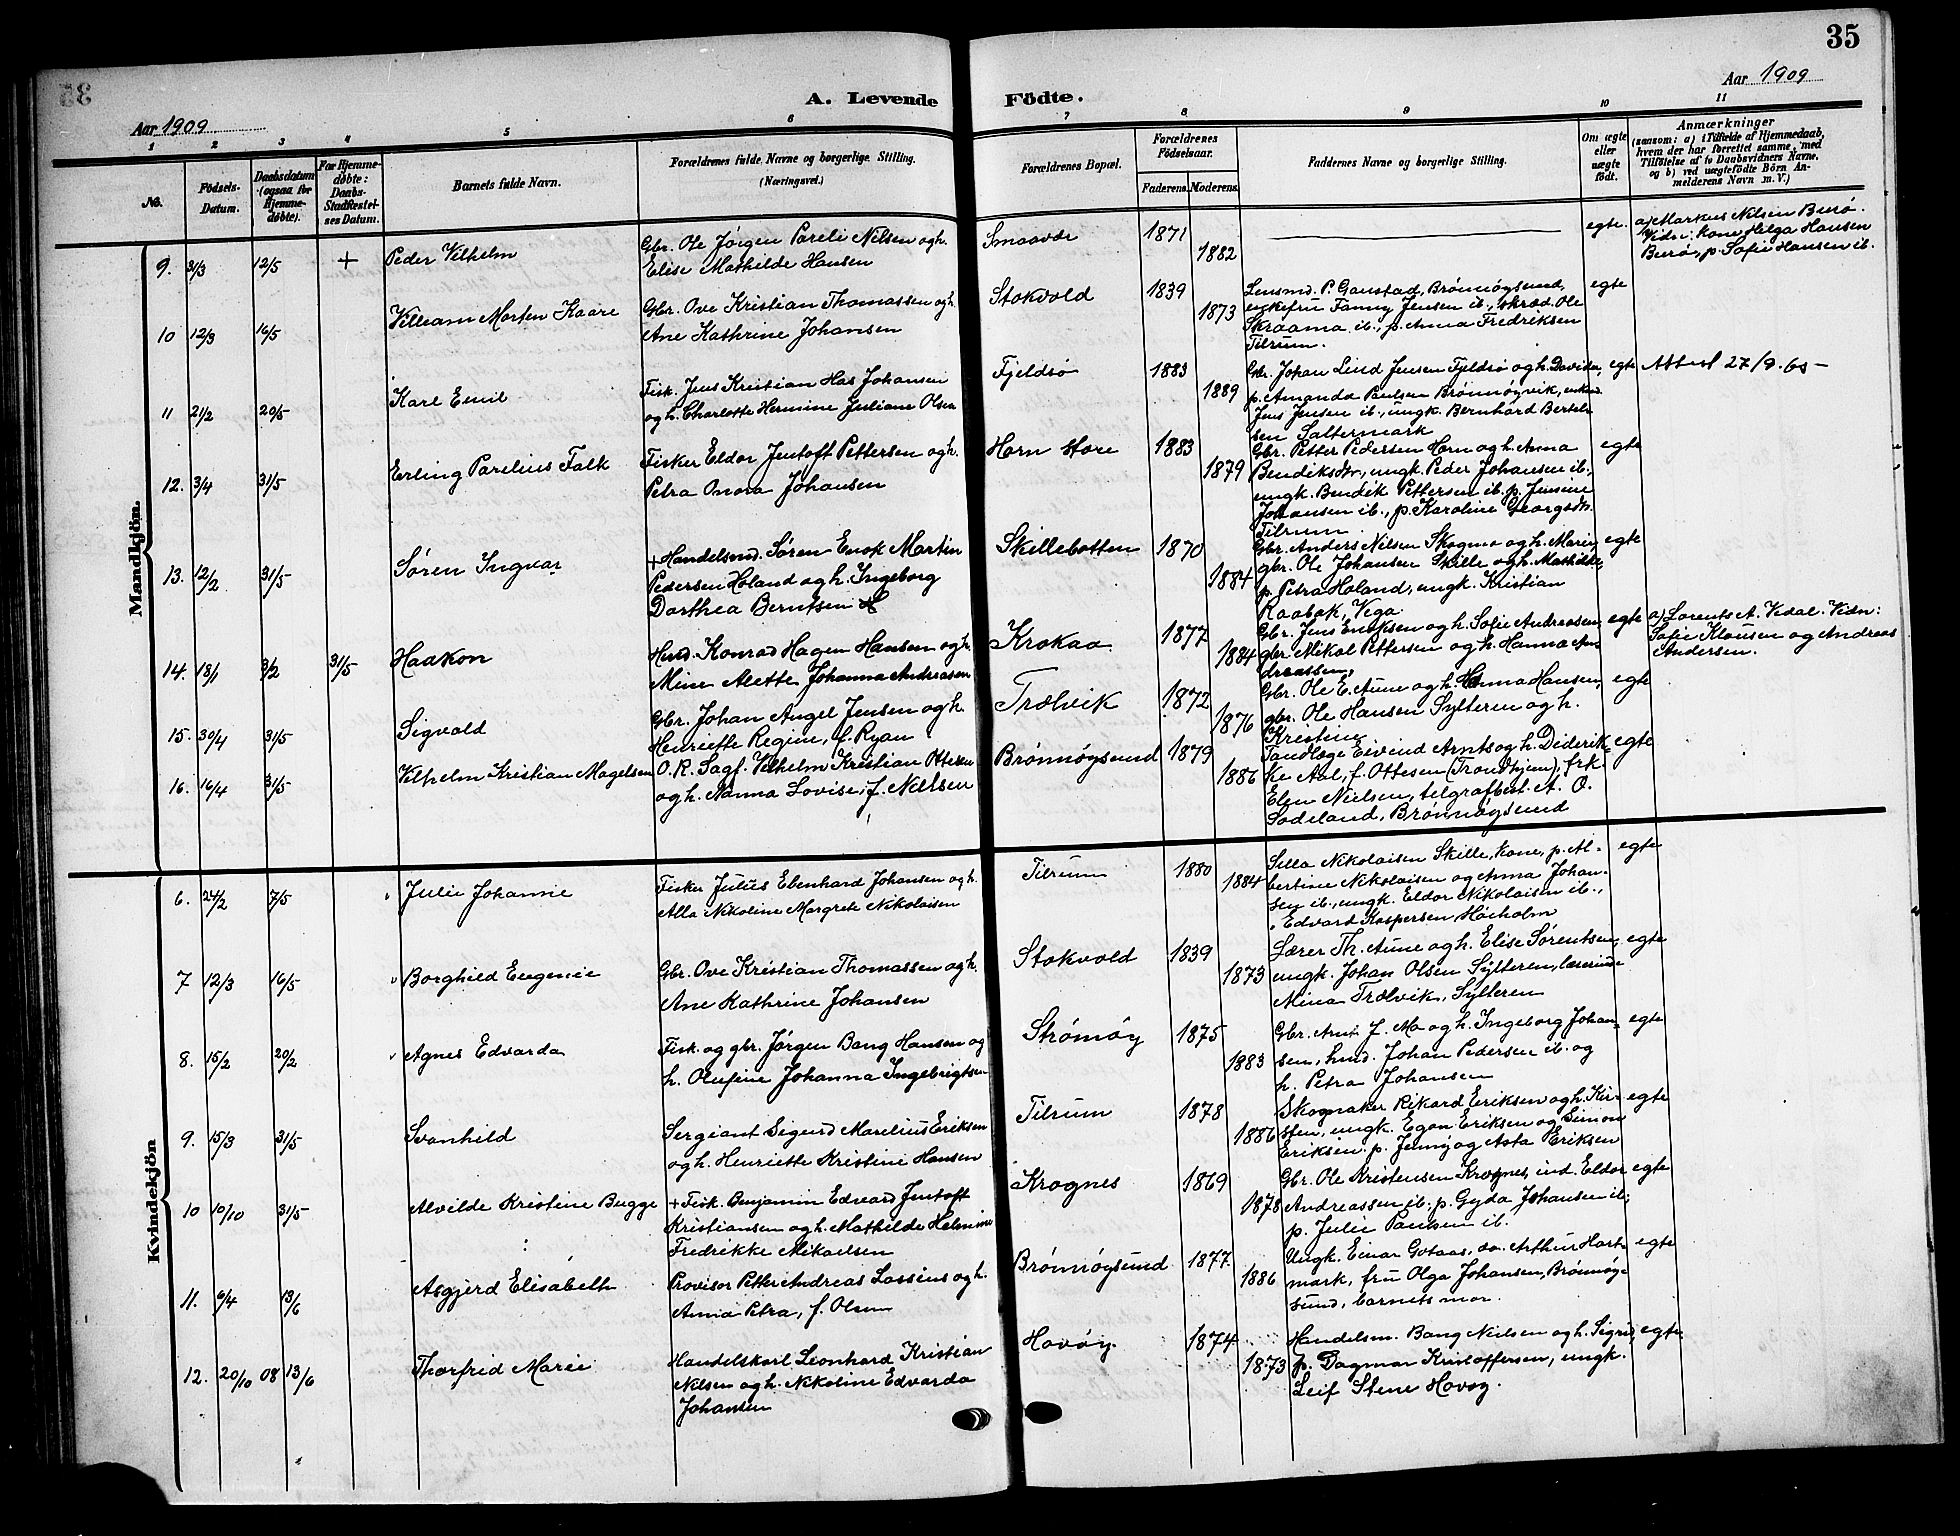 35
Aar 1909
A. Levende Födte.
Aar 1909
1 2 3 4 5 6 7 8 9 10 11
No.
Födsels-Datum.
Daabsdatum (ogsaa for Hjemmedøbte).
For Hjemmedøbte: Daabs-Stadfæstelses Datum.
Barnets fulde Navn.
Forældrenes fulde Navne og borgerlige Stilling. (Næringsvei.)
Forældrenes Bopæl.
Forældrenes Födselsaar.
Faderens. Moderens.
Faddernes Navne og borgerlige Stilling.
Om ægte eller uægte födt.
Anmærkninger
(saasom: a) i Tilfælde af Hjemmedaab, hvem der har forrettet samme, med Tilföielse af to Daabsvidners Navne, og b) ved uægtefödte Börn Anmelderens Navn m. V.)
Mandkjön.
9. 31/3 12/5 + Peder Vilhelm
Gbr. Ole Jørgen Pareli Nilsen og h.
Elise Mathilde Hansen
1871 1882 egte.
a) Markus Nilsen Burø.
Vidn: Kone Helga Hansen
Burø, p. Sofie Hansen ib.
10 12/3 16/5 Villiam Morten Kaare
Gbr. Ove Kristian Thomassen og h.
Ane Kathrine Johansen
Stokvold 1839 1873
Lensmd. P. Gaustad, Brønnøysund,
enkefru Fanny Jensen ib., skræd. Ole
Skraama ib., p. Anna Fredriksen
Tilrum.
egte
11 21/2 20/5 Karl Emil
Fisk. Jens Kristian Has Johansen
og h. Charlotte Hermine Juliane Olsen
Fjeldsø 1883 1889
Gbr. Johan Lind Jensen Fjeldsø og h. Davida,
p. Amanda Paulsen Brønnøyvik, enkem.
Jens Jensen ib., ungk. Bernhard Bertel-
sen Saltermark
egte Attest 27/9. 65 -
12. 3/4 31/5 Erling Parelius Falk
Fisker Eldor Jentoft Pettersen og h.
Petra Onora Johansen
Horn store 1883 1879
Gbr. Petter Pedersen Horn og h. Anna
Bendiksdtr., ungk. Peder Johansen ib.
ungk. Bendik Pettersen ib. p. Jensine
Johansen ib., p. Karoline Georgsdtr.
Tilrum.
egte
13. 12/2 31/5 Søren Ingvar
+ Handelsmd. Søren Enok Martin
Pedersen Holand og h. Ingeborg
Dorthea Berntsen
Skillebotten 1870 1884
Gbr. Anders Nilsen Skogmo og h. Marie,
gbr. Ole Johansen Skille og h. Mathilde,
p. Petra Holand, ungk. Kristian
Raabak, Vega.
egte
14. 18/1 3/2 31/5 Haakon
Hmd. Konrad Hagen Hansen og h.
Mine Alette Johanna Andreasen
Krokaa 1877 1884
Gbr. Jens Enoksen og h. Sofie Andreasen,
gbr. Mikal Pettersen og h. Hanna An-
dreassen,
egte
a) Lorents A. Vidal. Vidn:
Sofie Klausen og Andreas
Andersen.
15. 30/4 31/5 Sigvald
Gbr. Johan Angel Jensen og h.
Henriette Regine, f. Ryan
Trælvik 1872 1876
Gbr. Ole E. Aune og h. Anna Hansen,
gbr. Ole Hansen Sylteren og h.
Kristine
egte
16. 16/4 31/5 Vilhelm Kristian Magelsen
O. R. Sagf. Vilhelm Kristian Ottesen
og h. Nanna Lovise, f. Nielsen
Brønnøysund 1879 1886
Tandlæge Eivind Arnts og h. Diderik-
ke Aal, f. Ottesen (Trondhjem), frk.
Elen Nielsen, telgrafbest. A. O.
Sødeland, Brønnøysund
egte
Kvindekjön
6. 24/2 7/5 Julie Johanne
Fisker Julius Ebenhard Johansen og h.
Alla Nikoline Margrete Nikolaisen
Tilrum 1880 1884
Silla Nikolaisen Skille, kone, p. Al-
bertine Nikolaisen og Anna Johan-
sen ib., ungk. Eldor Nikolaisen ib.,
Edvard Kaspersen, Høiholm
egte
7 12/3 16/5 Borghild Eugenie
Gbr. Ove Kristian Thomassen og h.
Ane Kathrine Johansen
Stokvold 1839 1873
Lærer Th. Aune og h. Elise Sørentsen,
ungk. Johan Olsen Sylteren, lærerinde
Mina Trælvik, Sylteren
egte
8. 15/2 20/2 Agnes Edvarda
Fisk. og gbr. Jørgen Bang Hansen og
h. Olufine Johanna Ingebrigtsen
Strømøy 1875 1883
Gbr. Arnt J. Mo og h. Ingeborg Johan-
sen, hmd. Johan Pedersen ib. og
h. Petra Johansen
egte
9. 15/3 31/5 Svanhild
Sergiant Sigurd Marelius Eriksen
og h. Henriette Kristine Hansen
Tilrum 1878 1886
Skogmaker Rikard Eriksen og h. Kir-
sten, ungk. Egon Eriksen og Simon
Eriksen. p. Jenny og Asta Eriksen
egte
10 10/10 31/5 Alvilde Kristine Bugge
+ Fisk. Benjamin Edvard Jentoft
Kristiansen og h. Mathilde Helmine
Fredrikke Mikaelsen
Krognes 1869 1878
Gbr. Ole Kristensen Krognes, ind. Eldor
Andreassen ib. p. Gyda Johansen ib.
p. Julie Paulsen ib.
egte
11. 6/4 13/6 Asgjerd Elisabeth
Provisor Petter Andreas Lassius og h.
Anna Petra, f. Olsen
Brønnøysund 1877 1886
Ungk. Einar Gotaas, do. Arthur Hart-
mark, fru Olga Johansen, Brønnøy-
sund, barnets mor.
egte
12. 20/10 08 13/6 Thorfrid Marie
Handelskarl Leonhard Kristian
Nilsen og h. Nikoline Edvarda
Johansen
Hovøy. 1874 1873
Handelsm. Bang Nielsen og h. Sigrid,
p. Dagmar Kristoffersen, ungk.
Leif Stene Hovøy.
egte